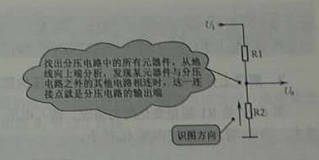 Ui
R1
找出分压电路中的所有元器件，从地
线向上端分析，发现某元器件与分压
电路之外的其他电路相连时，这一连
接点就是分压电路的输出端
Uo
R2
识图方向